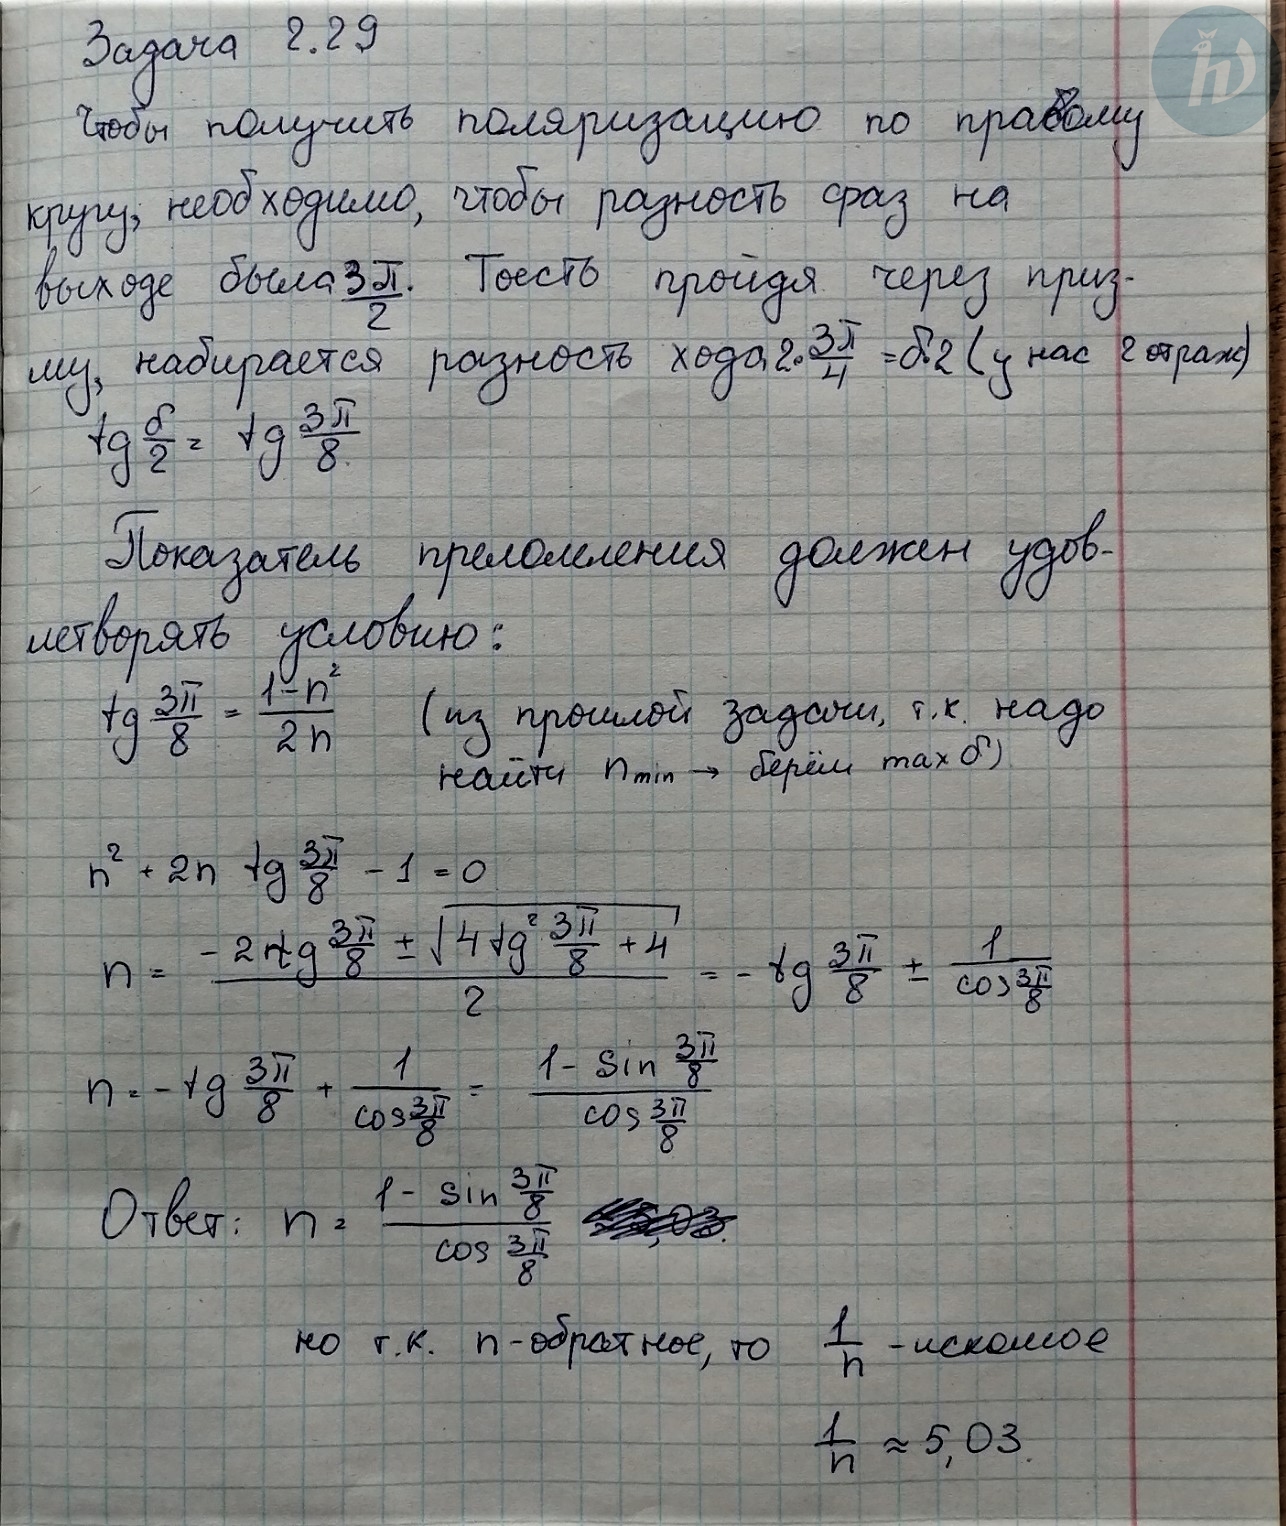 Задача 2.29
Чтобы получить поляризацию по правому
кругу, необходимо, чтобы разность фаз на
выходе была 3π/2. Тоесть пройдя через приз-
му, набирается разность хода 2·3π/4 = δ·2 (у нас 2 отраж)
tg δ/2 = tg 3π/8.
Показатель преломления должен удов-
летворять условию:
tg 3π/8 = (1-n²)/2n (из прошлой задачи, т.к. надо
найти n min → берём max δ)
n² + 2n tg 3π/8 - 1 = 0
n = (-2 tg 3π/8 ± √(4 tg² 3π/8 + 4))/2 = - tg 3π/8 ± 1/cos 3π/8
n = - tg 3π/8 + 1/cos 3π/8 = (1 - sin 3π/8)/cos 3π/8
Ответ: n = (1 - sin 3π/8)/cos 3π/8
но т.к. n-обратное, то 1/n - искомое
1/n ≈ 5,03.